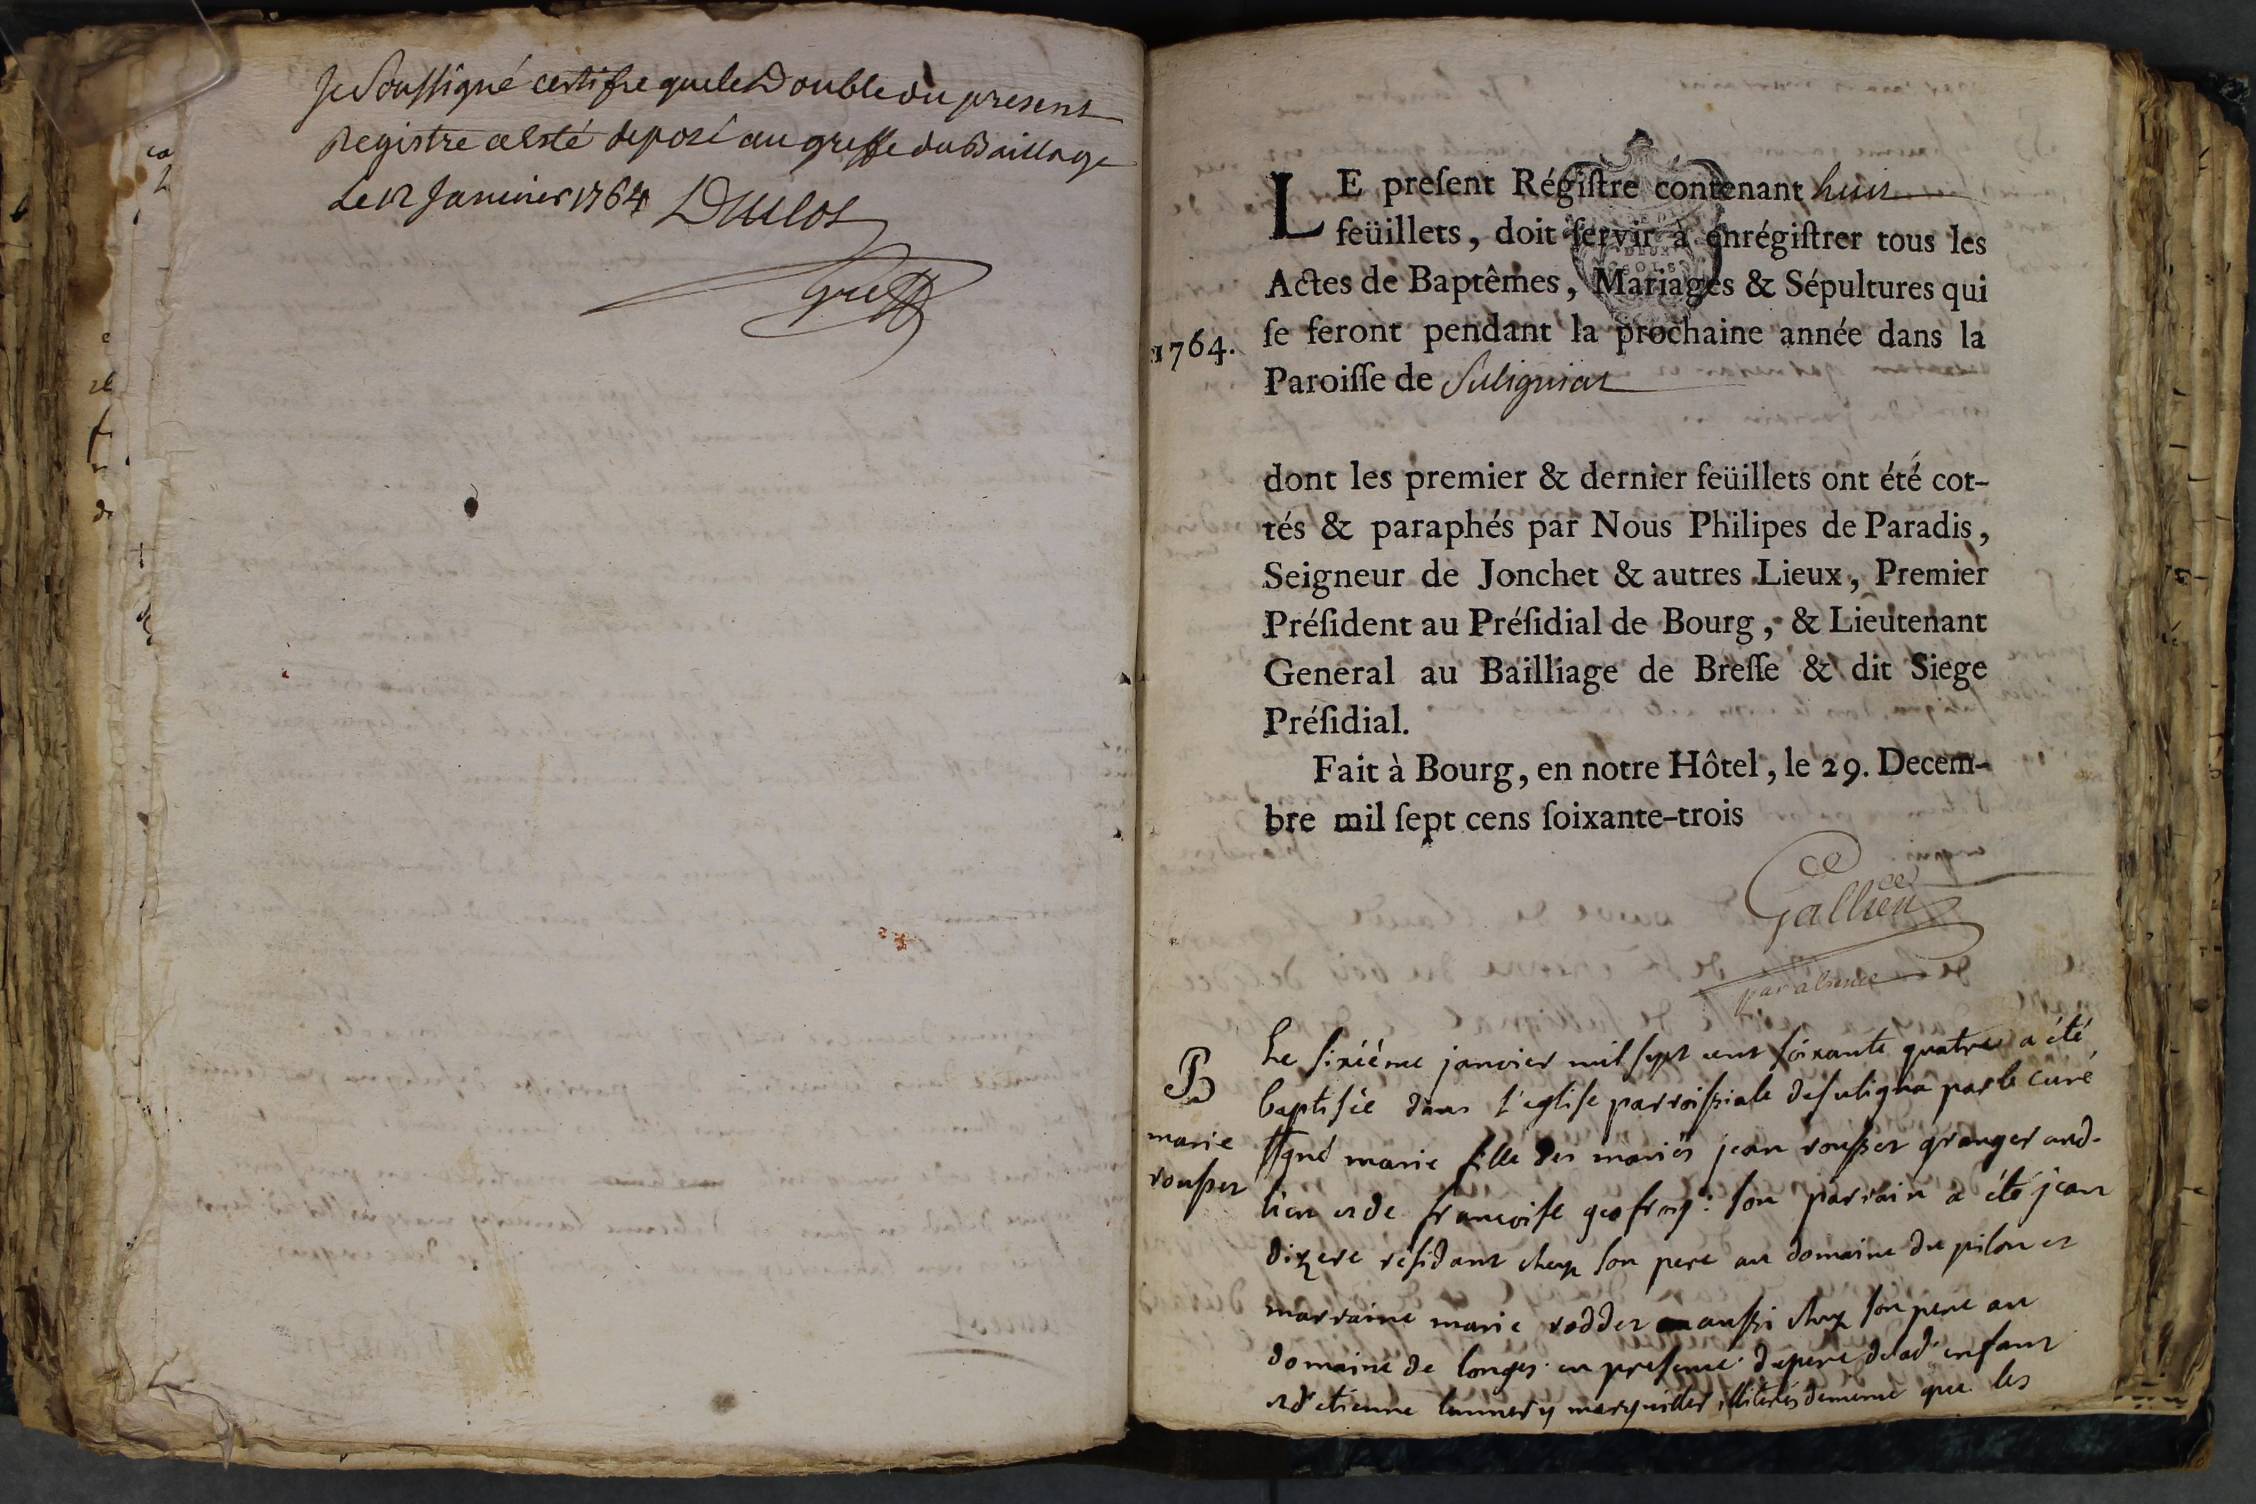 Je Soussigné certifie que le Double du present
Registre a esté deposé au greffe du Baillage
Le 12 Janvier 1764 Duclos
Greff
LE preſent Régiſtre contenant huit
feüillets, doit ſervir à enrégiſtrer tous les
Actes de Baptêmes, Mariages & Sépultures qui
1764.
ſe feront pendant la prochaine année dans la
Paroiſſe de Suligniat
dont les premier & dernier feüillets ont été cot-
tés & paraphés par Nous Philipes de Paradis,
Seigneur de Jonchet & autres Lieux, Premier
Préſident au Préſidial de Bourg, & Lieutenant
General au Bailliage de Breſſe & dit Siege
Préſidial.
Fait à Bourg, en notre Hôtel, le 29. Decem-
bre mil ſept cens ſoixante-trois
Gallien
par absence
B
marie
rousset
Le sixiéme janvier mil sept cent soixante quatre a été
baptisée dans l'eglise parroissiale de suligna par le curé
ssgné marie fille des mariés jean rousset granger aud.
lieu et de francoise geofroy: son parrain a été jean
dizere résidant chez son pere au domaine du pilon et
marraine marie roddet aussi chez son pere au
domaine de longes en presence du pere de lad. enfant
et d'etienne lannery marguiller illiterés de meme que les